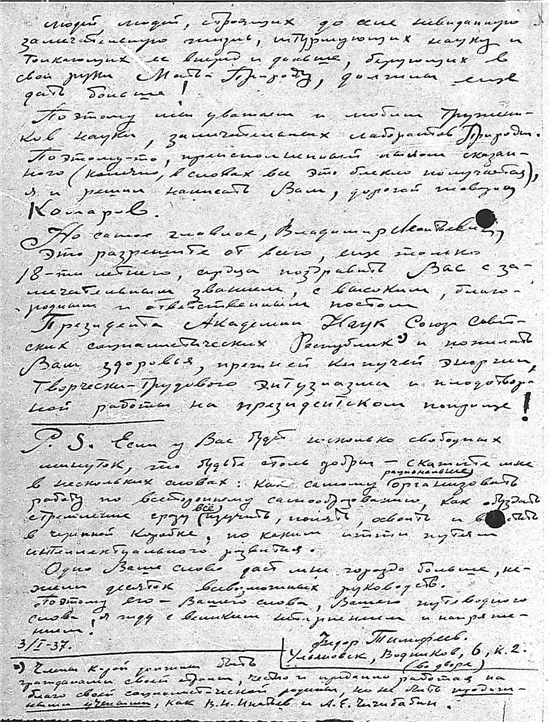 людей людей, строящих до селе невиданную
замечательную жизнь, штурмующих науку и
толкающих ее вперед и дальше, берущих в
свои руки Мать-Природу, должны еще
дать больше!
Поэтому мы уважаем и любим тружени-
ков науки, замечательных лаборантов Природы.
Поэтому-то, преисполненный пылом сказан-
ного (конечно, в словах все это блекло получается),
я и решил написать Вам, дорогой товарищ
Комаров.
Но самое главное, Владимир Леонтьевич,
это разрешите от всего, еще только
18-ти летнего, сердца поздравить Вас с за-
мечательным званием, с высоким, благо-
родным и ответственным постом
Президента Академии Наук Союза Совет-
ских социалистических Республик*) и пожелать
Вам здоровья, прежней кипучей энергии,
творчески-трудового энтузиазма и плодотвор-
ной работы на президентском поприще!
P.S. Если у Вас будет несколько свободных
минуток, то будьте столь добры – скажите мне
в нескольких словах: как самому рационально организовать
работу по всестороннему самообразованию, как
стремление сразу все изучить, понять, освоить и
в черепной коробке, по каким итти путям
интеллектуального развития.
Одно Ваше слово даст мне гораздо больше, не-
жели десяток всевозможных руководств.
Поэтому его – Вашего слова, Вашего путеводного
слова, я жду с великим нетерпением и напряже-
нием.
3/I-37.
Федор Тимофеев.
Ульяновск, Водников, 6, к. 2.
(во дворе)
*) Члены к-рой должны быть
гражданами своей страны, честно и преданно работая на
благо своей социалистической родины, но не быть
учеными, как В.Н. Ипатьев и А.Е. Чичибабин.